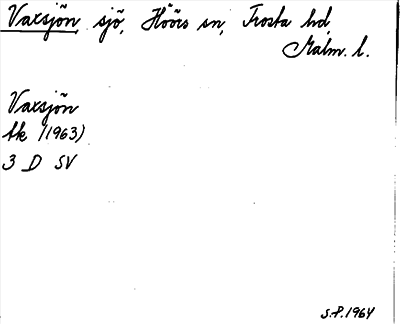 Vaxsjön, sjö, Höörs sn, Frosta hd,
Malm. l.
Vaxsjön
tk (1963)
3 D SV
S.P. 1964